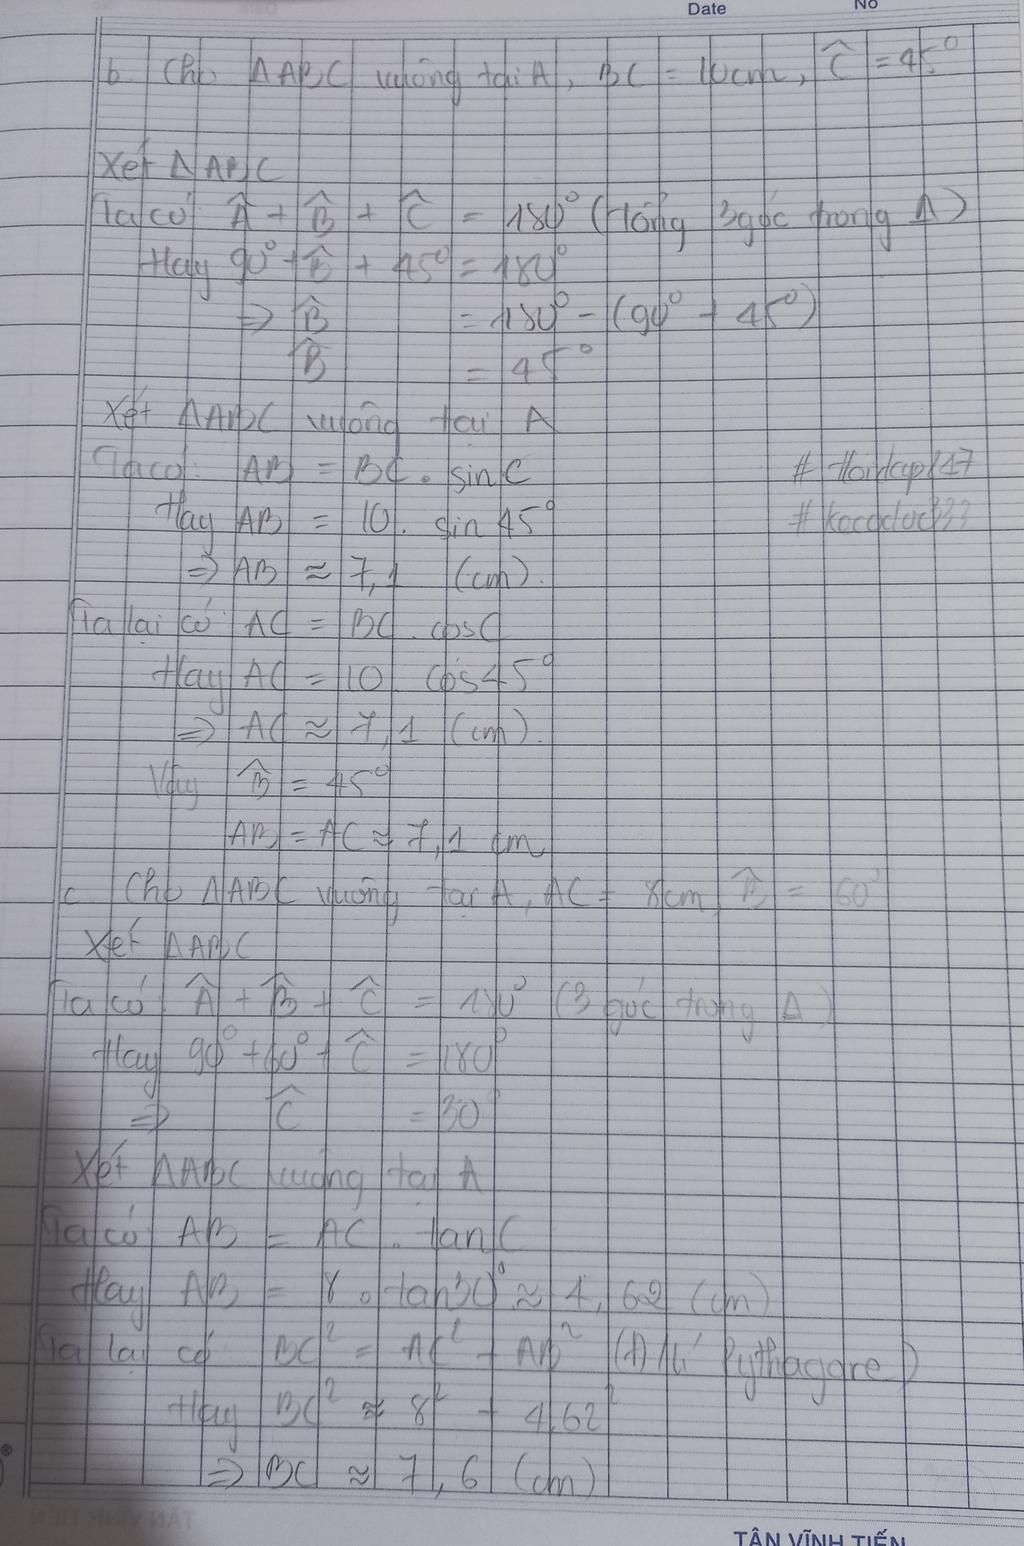 Date No
b. Cho ΔABC vuông tại A, BC = 10cm, Ĉ = 45°
Xét ΔABC
Ta có Â + B̂ + Ĉ = 180° (tổng 3 góc trong Δ)
Hay 90° + B̂ + 45° = 180°
⇒ B̂ = 180° - (90° + 45°)
B̂ = 45°
Xét ΔABC vuông tại A
Ta có: AB = BC . sin C
Hay AB = 10 . sin 45°
⇒ AB ≈ 7,1 (cm).
Ta lại có AC = BC . cos C
Hay AC = 10 cos 45°
⇒ AC ≈ 7,1 (cm).
Vậy B̂ = 45°
AB = AC ≈ 7,1 cm
c Cho ΔABC vuông tại A, AC = 8cm, B̂ = 60°
Xét ΔABC
Ta có Â + B̂ + Ĉ = 180° (3 góc trong Δ)
Hay 90° + 60° + Ĉ = 180°
⇒ Ĉ = 30°
Xét ΔABC vuông tại A
Ta có AB = AC . tan C
Hay AB = 8 . tan 30° ≈ 4,62 (cm)
Ta lại có BC² = AC² + AB² (Pythagore)
Hay BC² ≈ 8² + 4,62²
⇒ BC ≈ 7,6 (cm)
TÂN VĨNH TIẾN